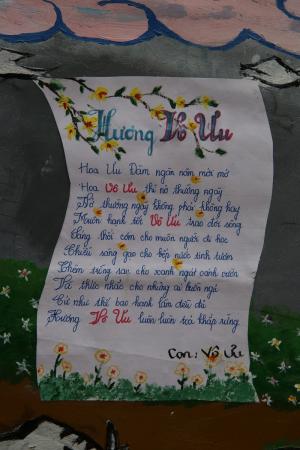 Hương Vô Ưu
Hoa Ưu Đàm ngàn năm mới nở
Hoa Vô Ưu thì nở thường ngày
Nở thường ngày không phải không hay
Muôn hạnh tốt Vô Ưu trao đời sống
Dâng thổi cơm cho muôn người đi học
Chiều sáng gạo cho bếp nước tinh tươm
Chêm trứng sau cho xanh ngát cành vườn
Và thức nhắc cho những ai buồn ngủ
Cứ như thế bao hạnh lần đều đủ
Hương Vô Ưu luôn luôn toả khắp rừng
Con: Vô Ưu